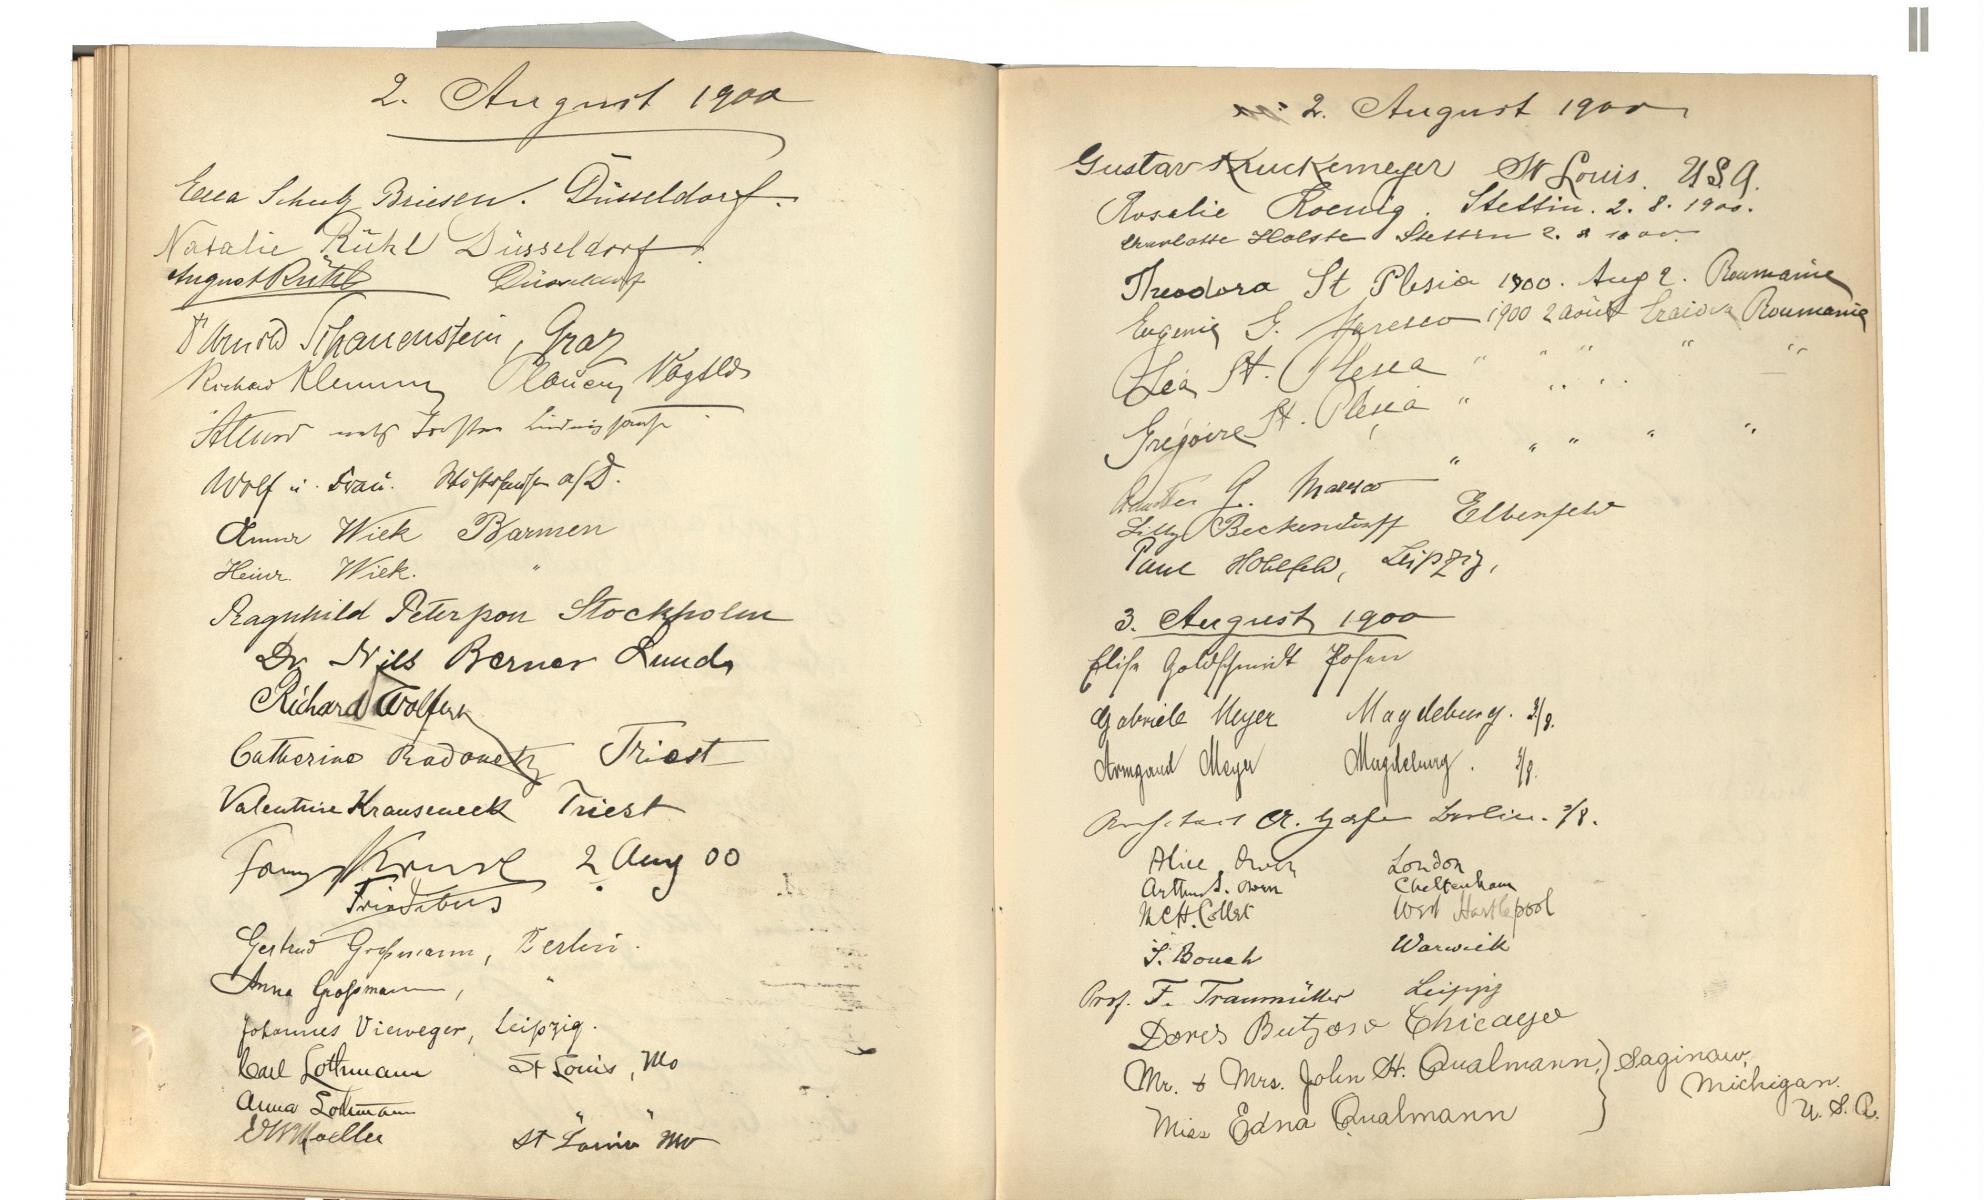 2. August 1900
Schulz Briesen. Düsseldorf.
Natalie Rühl Düsseldorf.
August Rühl Düsseldorf
Arnold Schauenstein, Graz
Richard Klemm Plauen Vogtld
Wolf u. Frau. a/D.
Anna Wiek Barmen
Heinr. Wiek. "
Ragnhild Peterson Stockholm
Dr Nils Berner Lund
Richard
Catherine Triest
Valentine Krauseneck Triest
2 Aug 00
Gertrud Großmann, Berlin.
Anna Großmann, "
Johannes Vieweger, Leipzig.
Karl Lothmann St Louis, Mo
Anna Lothmann
EWMoeller St "Louis" Mo
2. August 1900
Gustav Kruckemeyer St Louis. U.S.A.
Rosalie Koenig. Stettin. 2. 8. 1900.
Charlotte Holste Stettin 2. 8 1900.
Theodora St Plesia 1900. Aug 2. Roumanie
Eugenie G. 1900 2 août Craiova Roumanie
Léa St. Plesea " " " " "
Grégoire St. Plesia "
G.
Lilly Beckendorff Elberfeld
Paul Hohlfeld, Leipzig,
3. August 1900
Elise Goldschmidt Posen
Gabriele Meyer Magdeburg. 3/8.
Armgard Meyer Magdeburg. 3/8.
A. Berlin. 3/8.
Alice Owen London
Arthur S. Owen Cheltenham
M C H. Collet West Hartlepool
S. Bouch Warwick
Prof. F. Traumüller Leipzig
Chicago
Mr. & Mrs. John H. Qualmann, } Saginaw,
Michigan.
Miss Edna Qualmann U. S. A.